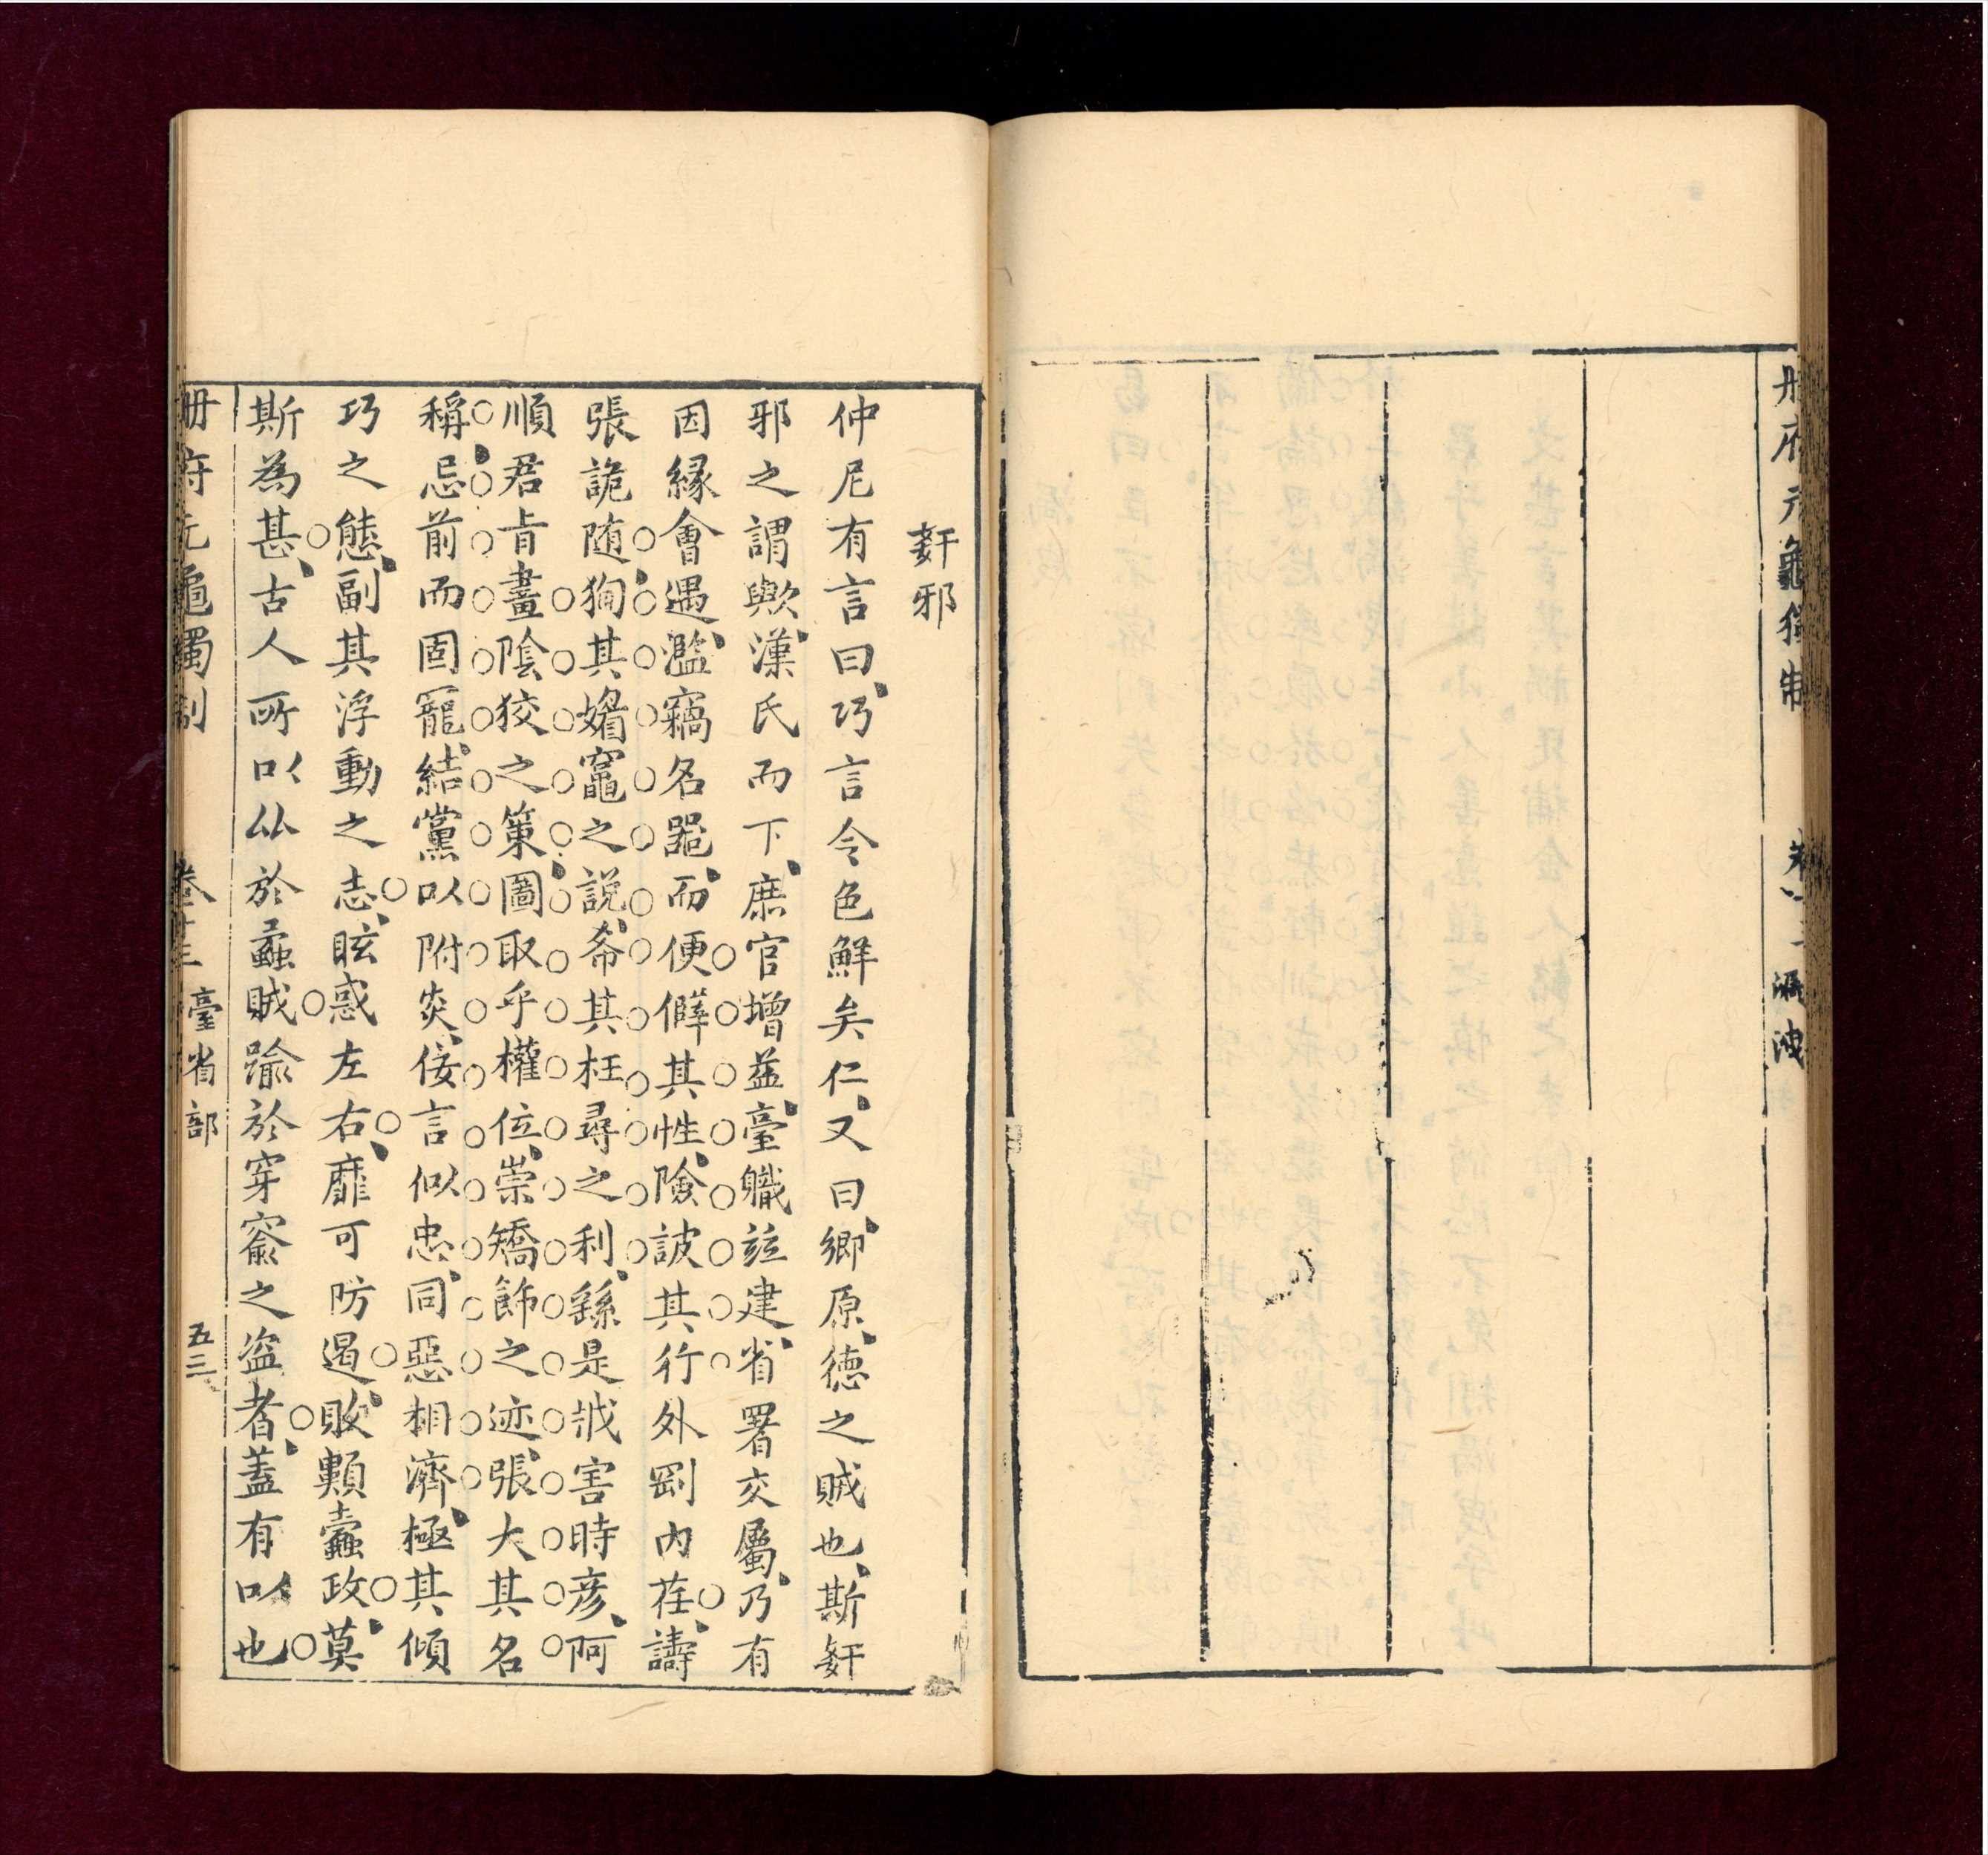 册府元龜獨制
漏洩
姧邪
仲尼有言曰、巧言令色鮮矣仁、又曰、鄉原、德之賊也、斯姧
邪之謂歟、漢氏而下、庶官增益、臺職竝建、省署交屬、乃有
因緣會遇、濫竊名器、而便僻其性、險詖其行外剛內荏、譸
張詭随、狥其媚竈之說、希其枉尋之利、繇是戕害時彦、阿
順君㫖畫陰狡之策、圖取乎權位、崇矯飾之迹、張大其名
稱、忌前而固寵、結黨以附炎、佞言似忠、同惡相濟、極其傾
巧之態、副其浮動之志、眩惑左右、靡可防遏、敗纇蠹政、莫
斯為甚、古人所以从於蟊賊踰於穿窬之盗者、蓋有以也
册府元龜獨制
卷十三
臺省部
五三